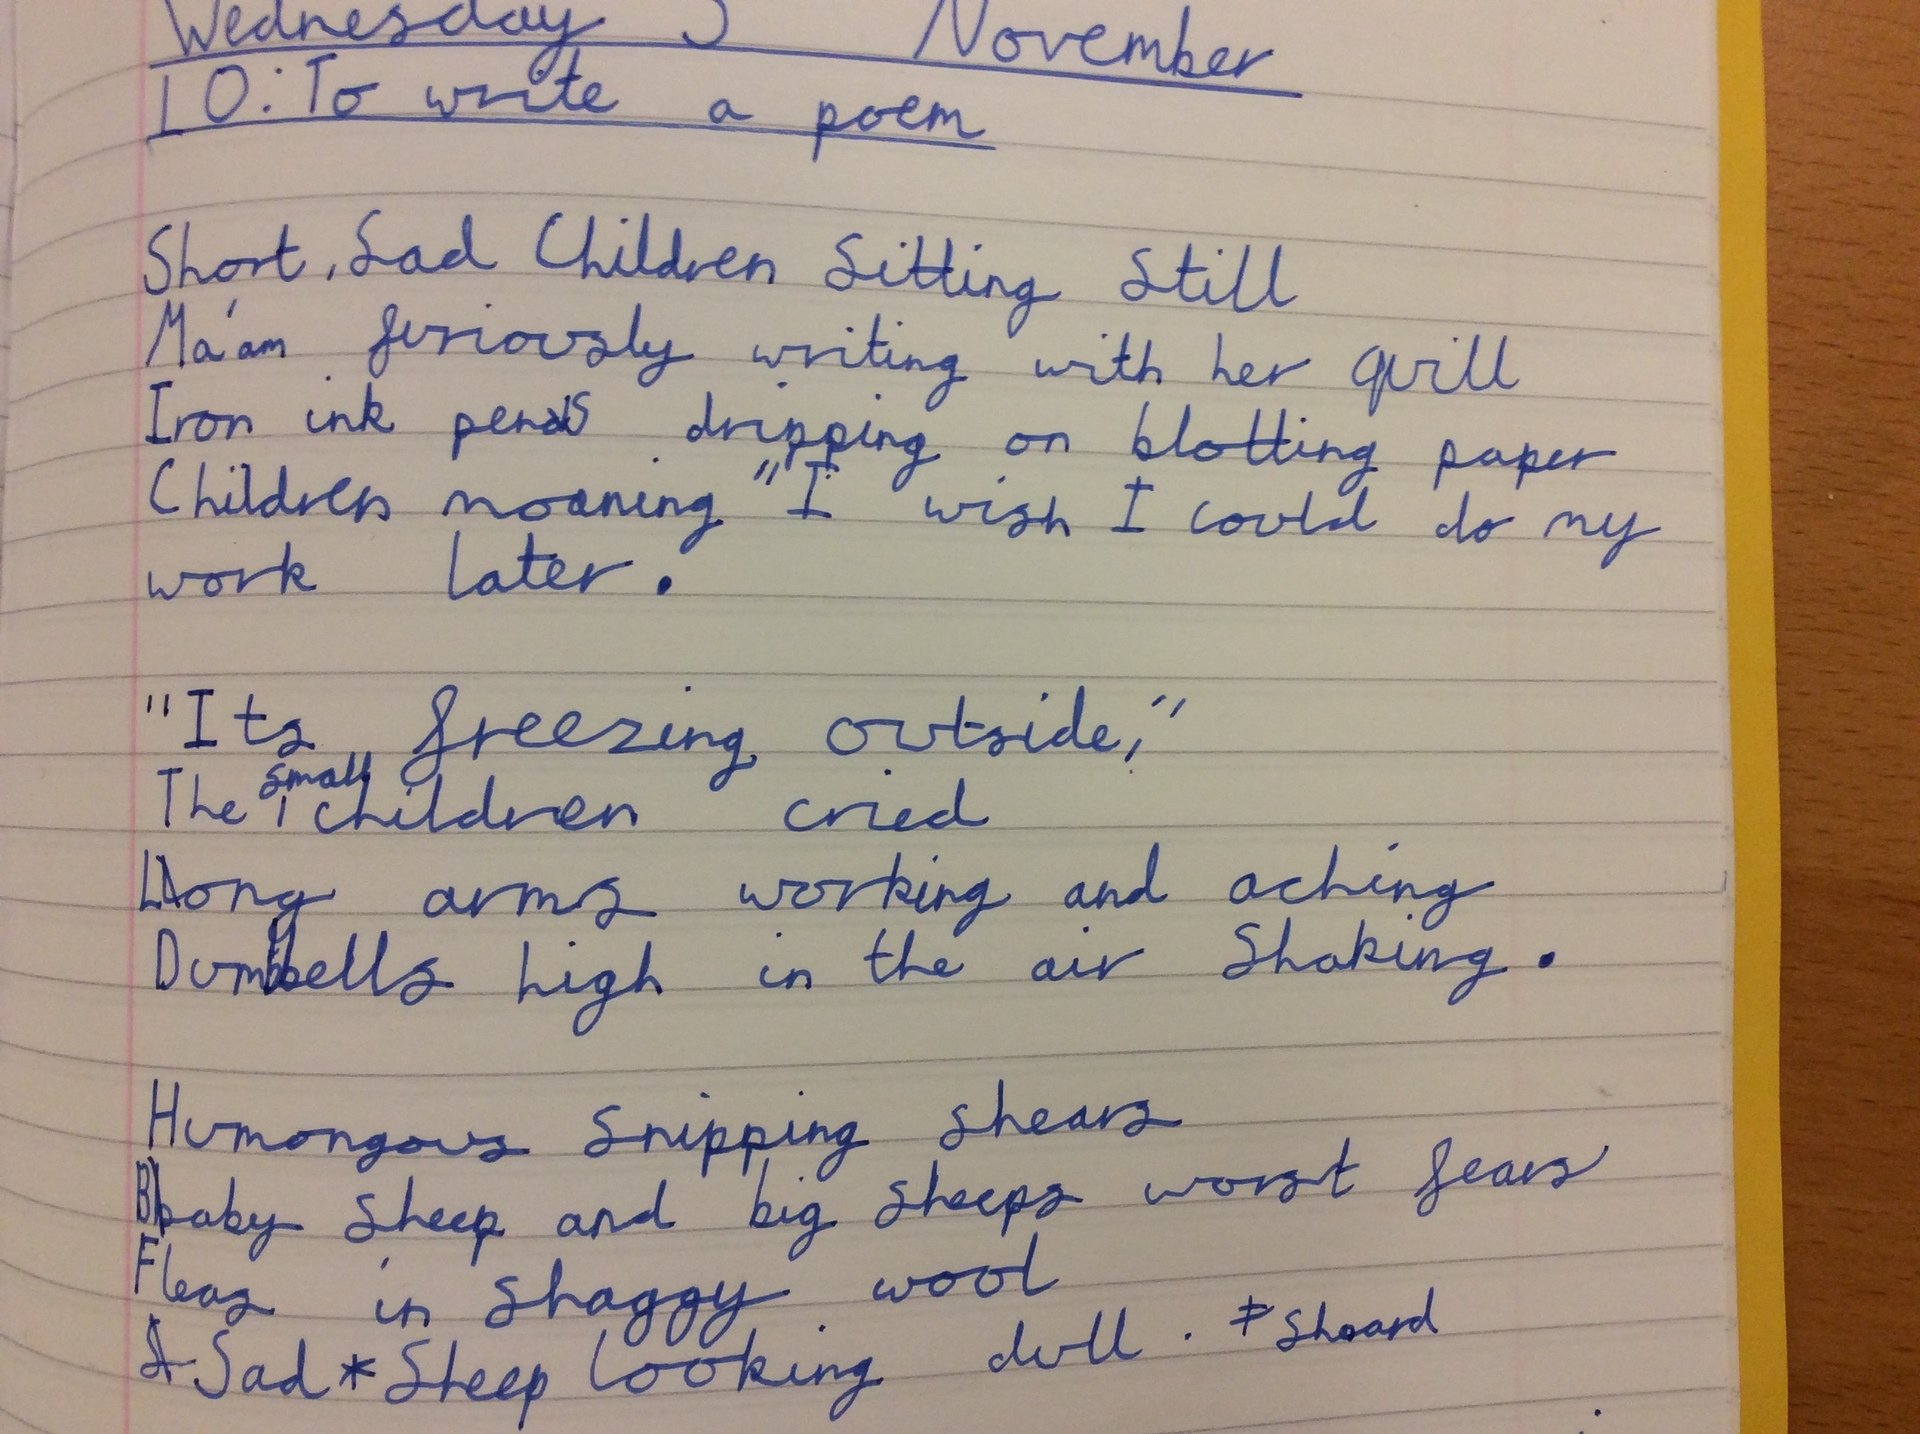 Wednesday November
LO: To write a poem
Short, Sad Children Sitting Still
Ma'am furiously writing with her quill
Iron ink pens dripping on blotting paper
Children moaning "I wish I could do my
work later.
"Its freezing outside,"
The small children cried
Long arms working and aching
Dumbbells high in the air Shaking.
Humongous Snipping shears
Baby sheep and big sheeps worst fears
Fleas in shaggy wool
Sad * Sheep looking dull. * Sheard